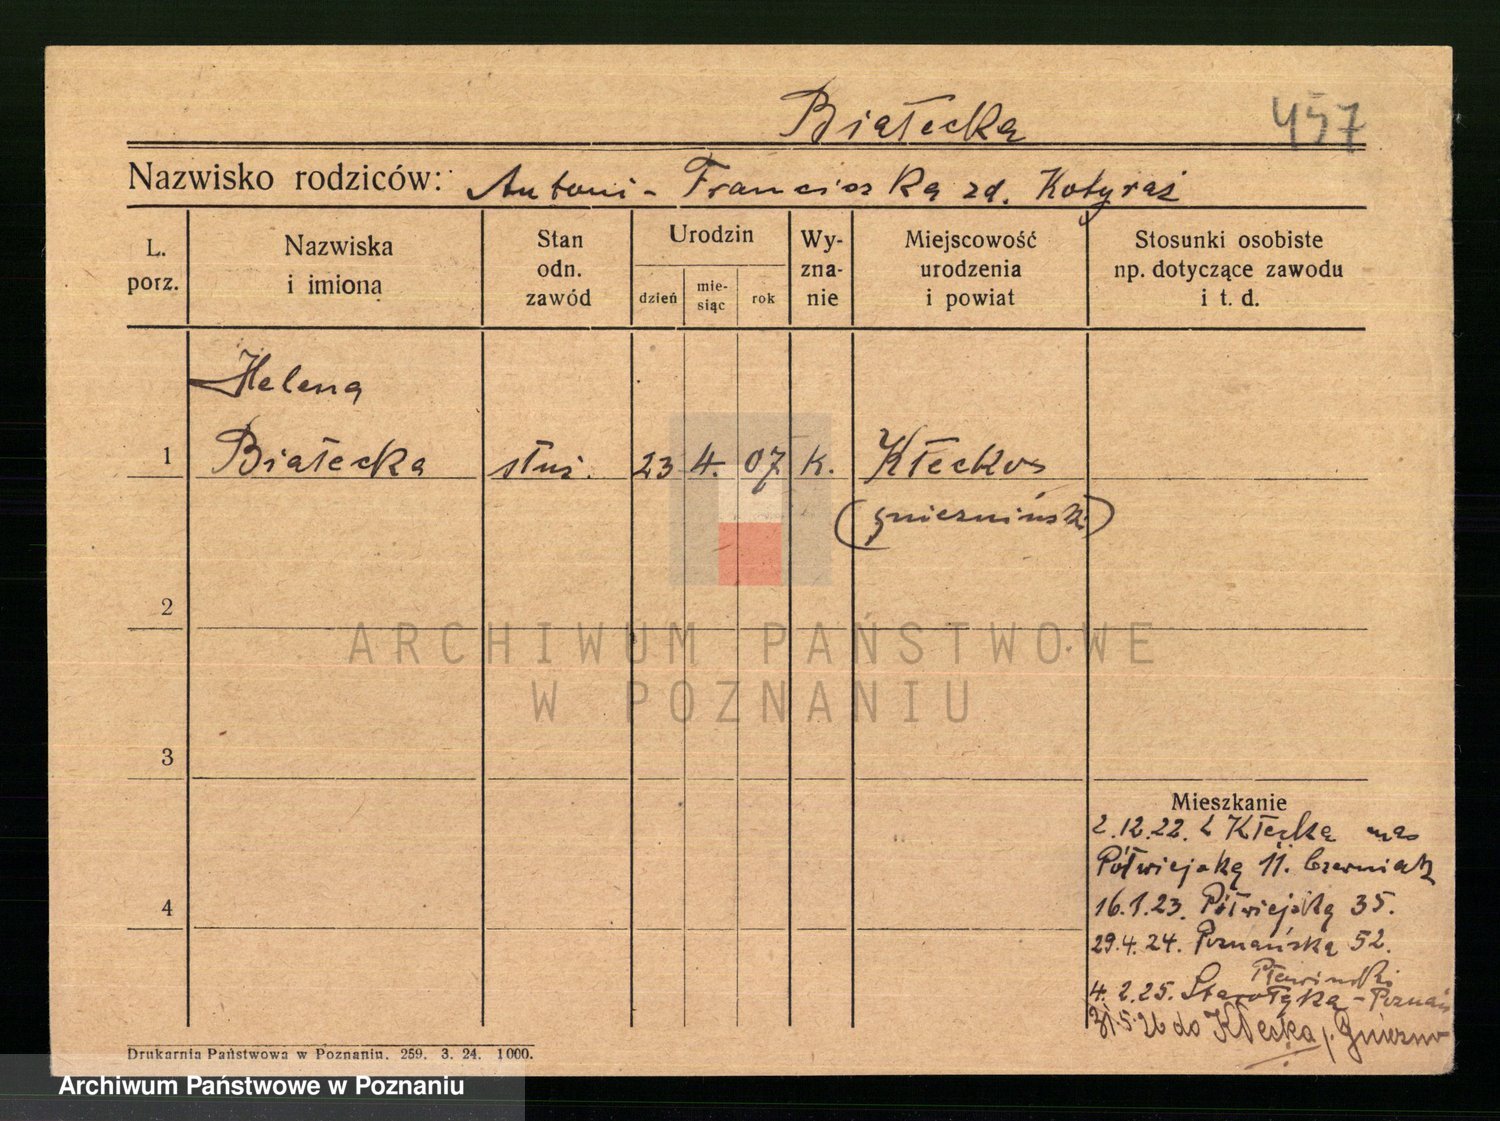 Białecka 457
Nazwisko rodziców: Antoni - Franciszka zd. Kotyraś
L. porz.
Nazwiska i imiona
Stan odn. zawód
Urodzin
dzień
mie-siąc
rok
Wy-zna-nie
Miejscowość urodzenia i powiat
Stosunki osobiste np. dotyczące zawodu i t. d.
Helena
1 Białecka służ. 23 4. 07 k. Kłecko
(gnieźnińsk.)
2
ARCHIWUM PAŃSTWOWE
W POZNANIU
3
Mieszkanie
2.12.22. z Kłecka
Półwiejska 11. Czerniak
4
16.1.23. Półwiejska 35.
29.4.24. Poznańska 52.
4.2.25. Starołęka - Poznań
31.5.26 do Kłecka p. Gniezno
Drukarnia Państwowa w Poznaniu. 259. 3. 24. 1000.
Archiwum Państwowe w Poznaniu